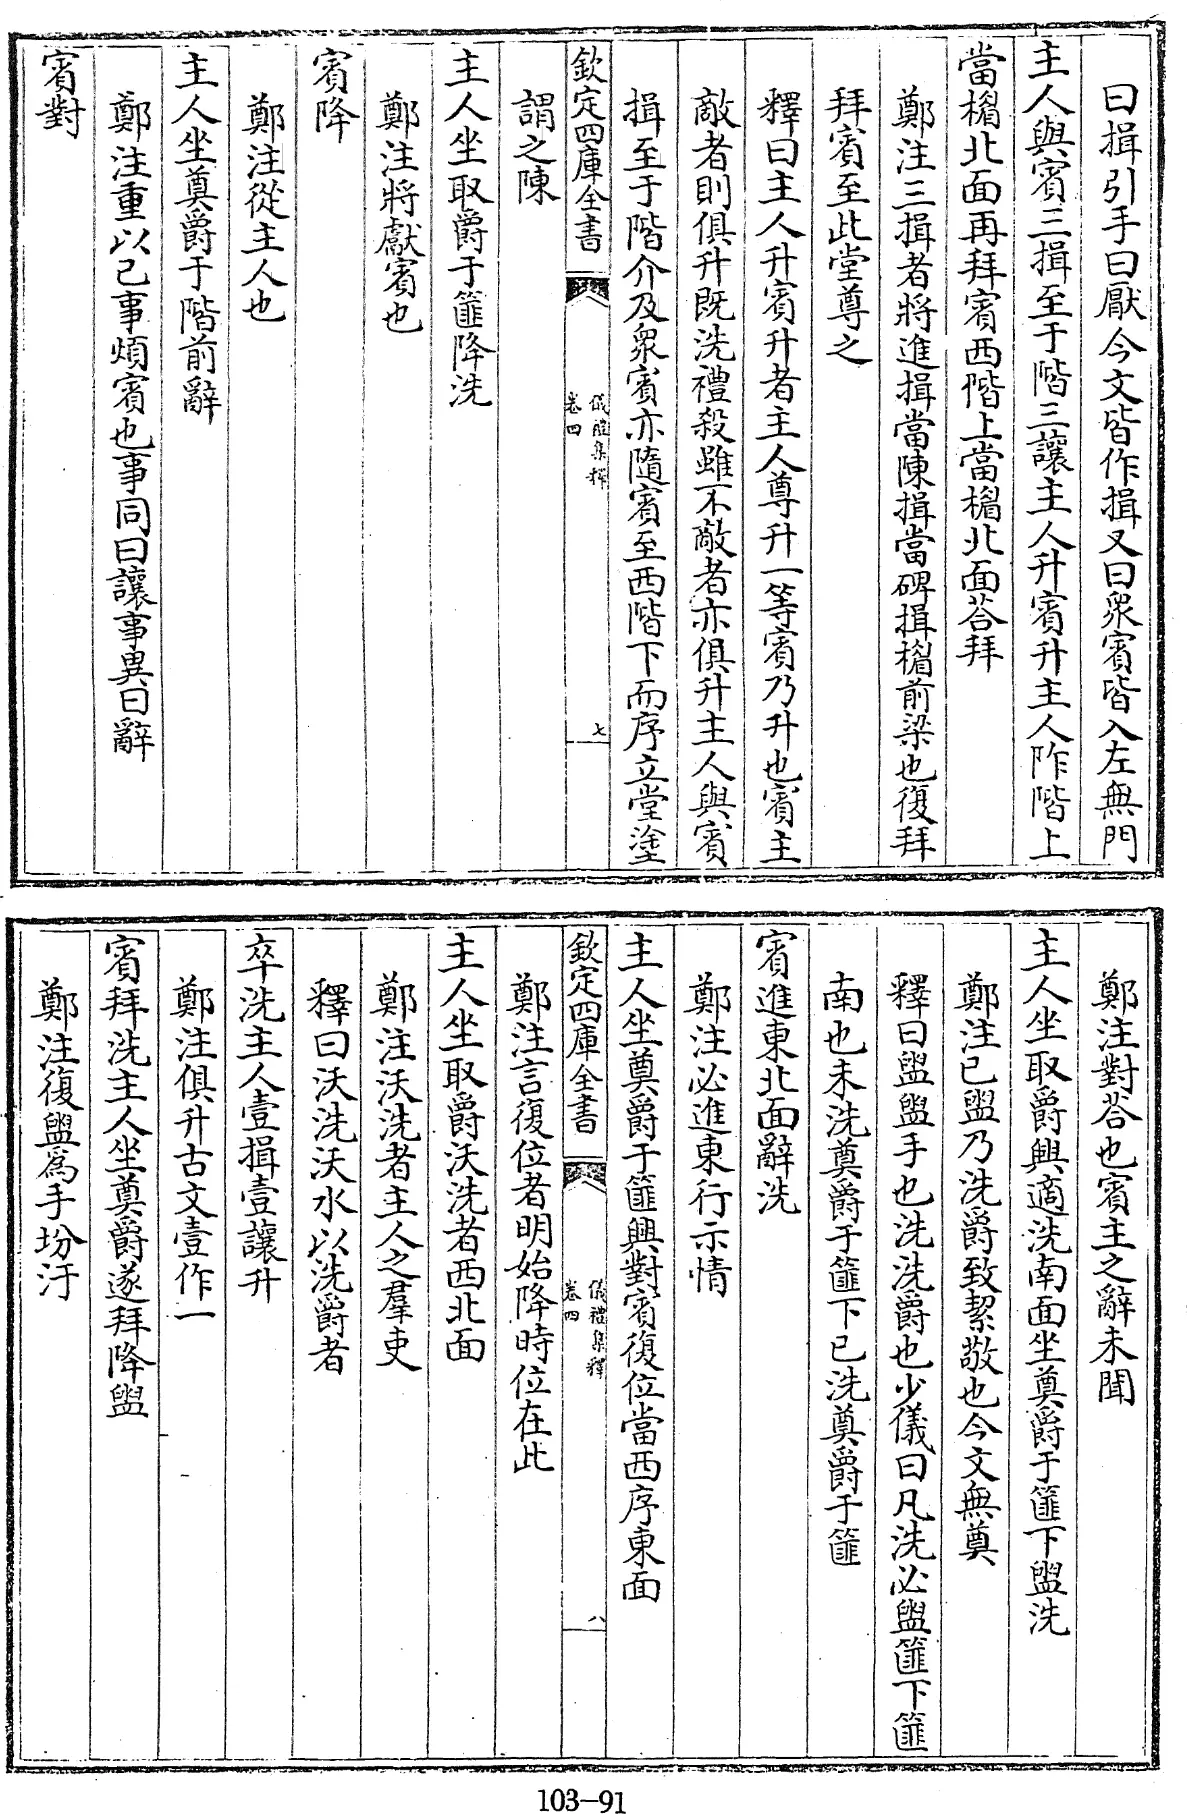 曰揖引手曰厭今文皆作揖又曰衆賓皆入左無門
主人與賓三揖至于階三讓主人升賓升主人阼階上
當楣北面再拜賓西階上當楣北面荅拜
鄭注三揖者將進揖當陳揖當碑揖楣前梁也復拜
拜賓至此堂尊之
釋曰主人升賓升者主人尊升一等賓乃升也賓主
敵者則俱升既洗禮殺雖不敵者亦俱升主人與賓
揖至于階介及衆賓亦隨賓至西階下而序立堂塗
欽定四庫全書
儀禮集釋
卷四
七
謂之陳
主人坐取爵于篚降洗
鄭注將獻賓也
賓降
鄭注從主人也
主人坐奠爵于階前辭
鄭注重以己事煩賓也事同曰讓事異曰辭
賓對
鄭注對荅也賓主之辭未聞
主人坐取爵興適洗南面坐奠爵于篚下盥洗
鄭注已盥乃洗爵致絜敬也今文無奠
釋曰盥盥手也洗洗爵也少儀曰凡洗必盥篚下篚
南也未洗奠爵于篚下已洗奠爵于篚
賓進東北面辭洗
鄭注必進東行示情
主人坐奠爵于篚興對賓復位當西序東面
欽定四庫全書
儀禮集釋
卷四
八
鄭注言復位者明始降時位在此
主人坐取爵沃洗者西北面
鄭注沃洗者主人之羣吏
釋曰沃洗沃水以洗爵者
卒洗主人壹揖壹讓升
鄭注俱升古文壹作一
賓拜洗主人坐奠爵遂拜降盥
鄭注復盥爲手坋汙
103-91